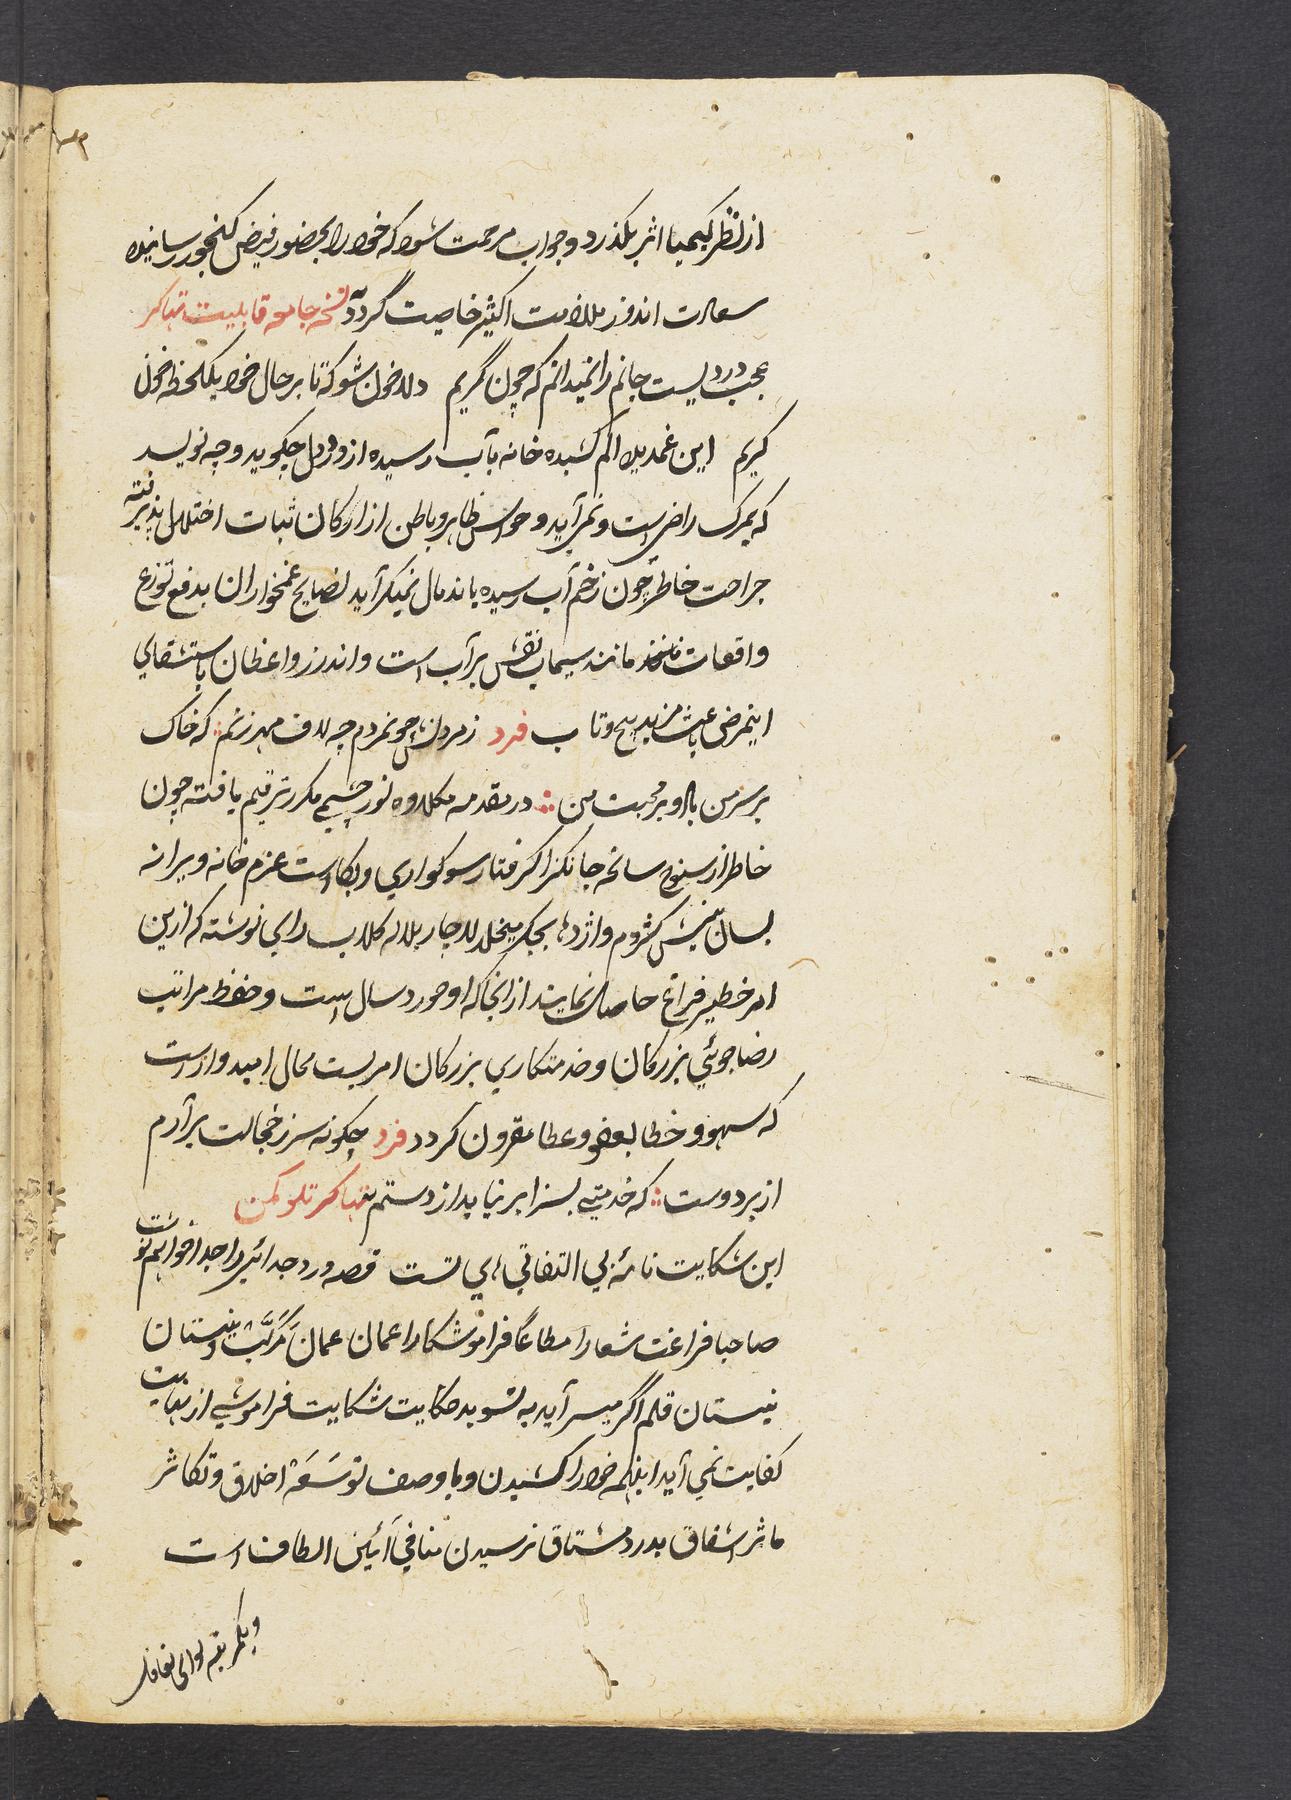 از نظر کیمیا اثر بکذرد و جواب مرحمت شود که خود را بحضور فیض کنجور رسانیده
سعادت اندوز ملازمت اکثیر خاصیت گردد نسخه جامعه قابلیت تهاکر
عجب دردیست جانم را نمیدانم که چون گریم دلا خون شو که تا بر حال خود یکلحظه خون
کریم این غمدیده الم کشیده خانه بآب رسیده از درد دل چکوید و چه نویسد
که بمرک راضی است و نمی آید و حواس ظاهر و باطن از ارکان ثبات اختلال پذیرفته
جراحت خاطر چون زخم آب رسیده باندمال نمیکراید نصایح غمخواران بدفع توزع
واقعات مانند سیماب نقش بر آب است و اندرز واعظان باستشفای
اینمرض باعث مزید پیچ و تاب فرد زمردنش چو نمردم چه لاف مهر زنم که خاک
بر سر من باد و بر محبت من در مقدمه نور چشمی مکرر ترقیم یافته چون
خاطر از سنوح سانحه جانکزا کرفتار سوکواری و بکاست عزم خانه ویرانه
بسان نیش کژدم و اژدها بجکر میخلد لاچار بلاله کلاب رای نوشته که ازین
امر خطیر فراغ حاصل نمایند از انجا که او خورد سال است و حفظ مراتب
رضاجوئی بزرکان و خدمتکاری بزرکان امریست محال امیدوار است
که سهو و خطا بعفو و عطا مقرون کردد فرد چکونه سر ز خجالت برآرم
از بر دوست که خدمتی بسزا بر نیاید از دستم بتهاکر تلوکمن
این شکایت نامهٔ بی التفاتی های تست قصه درد جدائی را جدا خواهم نوشت
صاحبا فراغت شعارا مطاعا فراموشکارا عمان عمان مرکب و نیستان
نیستان قلم اگر میسر آید به تسوید حکایت شکایت فراموشی از نهایت
کفایت نمی آید اینهمه خود را کشیدن و باوصف توسعه اخلاق و تکاثر
ماثر اشفاق بدرد مشتاق نرسیدن منافی آئین الطاف است